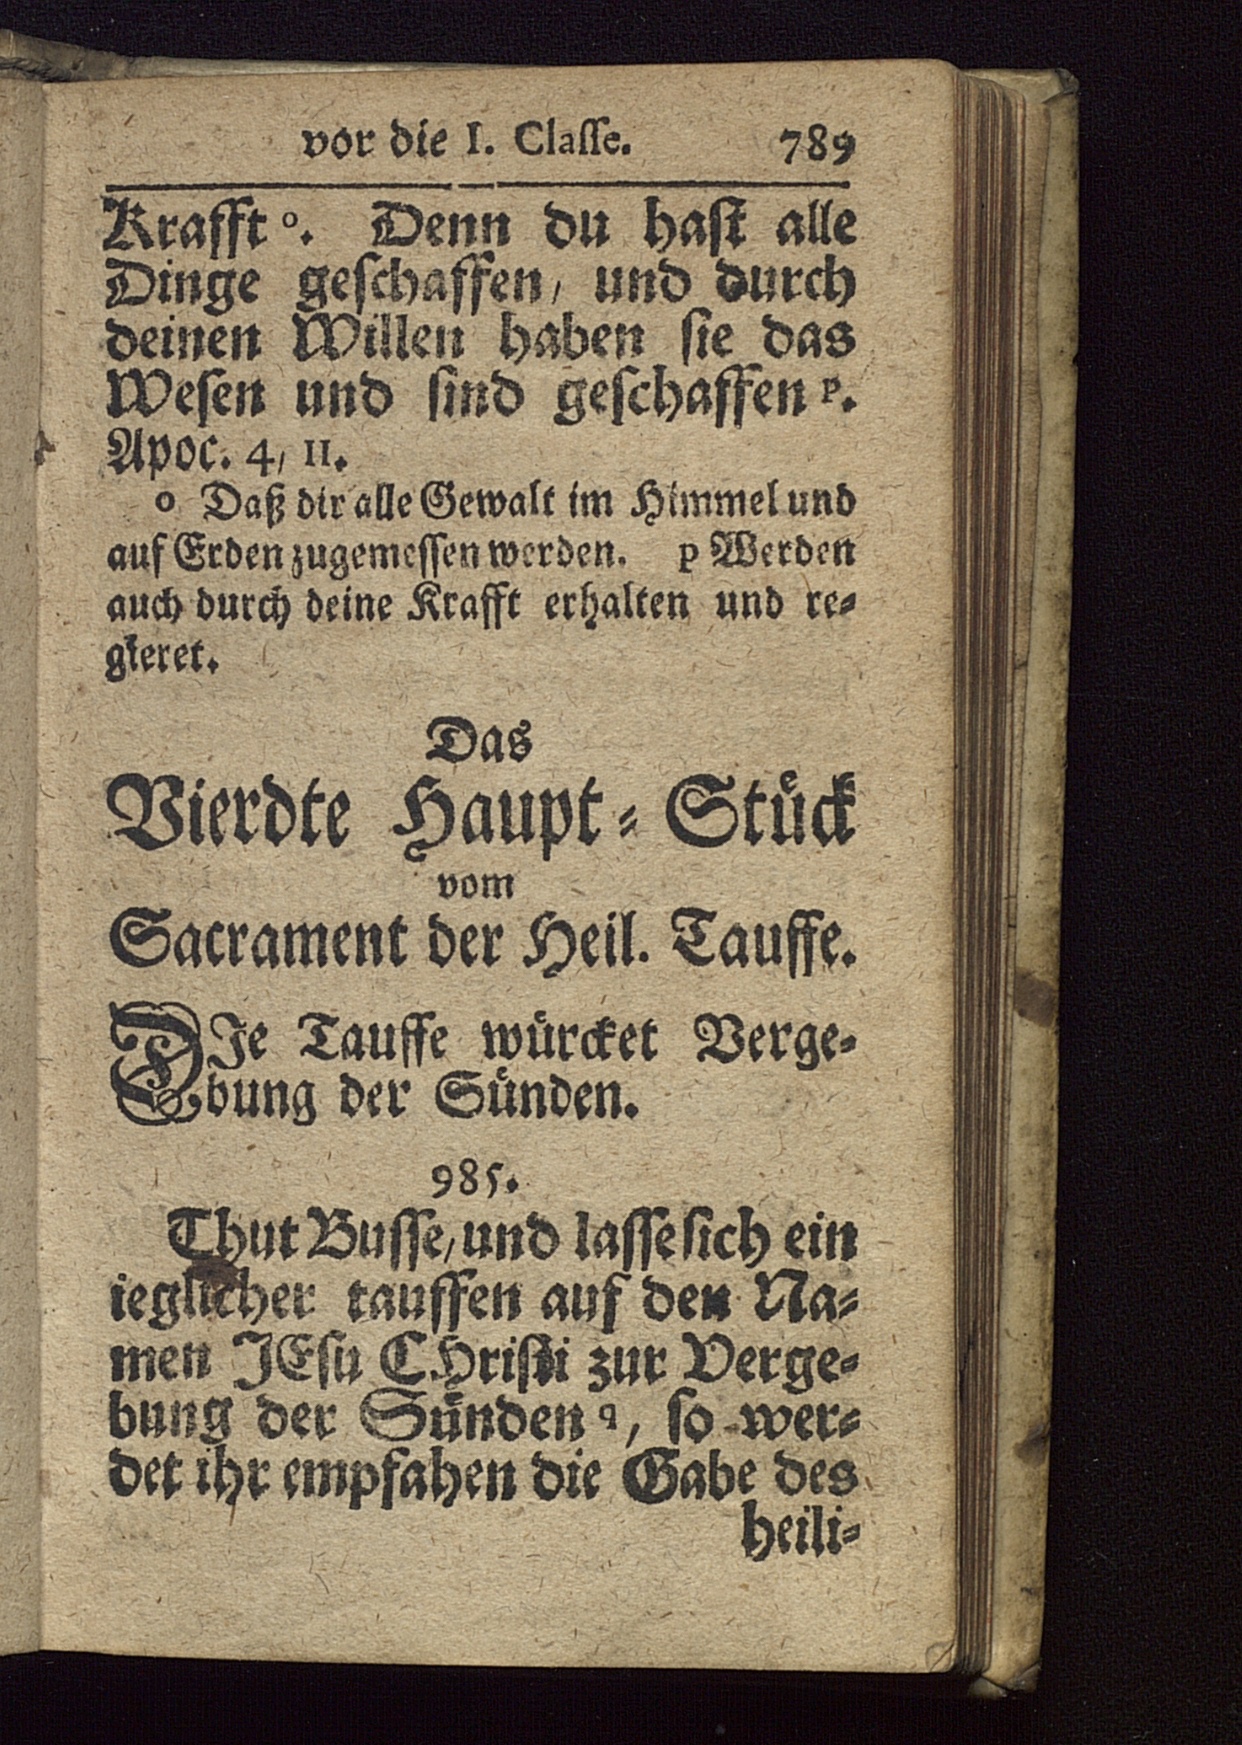 vor die I. Classe. 789
Krafft o. Denn du hast alle
Dinge geschaffen, und durch
deinen Willen haben sie das
Wesen und sind geschaffen p.
Apoc. 4, 11.
o Daß dir alle Gewalt im Himmel und
auf Erden zugemessen werden. p Werden
auch durch deine Krafft erhalten und re-
gieret.
Das
Vierdte Haupt-Stück
vom
Sacrament der Heil. Tauffe.
DIe Tauffe würcket Verge-
bung der Sünden.
985.
Thut Busse, und lasse sich ein
ieglicher tauffen auf den Na-
men JEsu CHristi zur Verge-
bung der Sünden q, so wer-
det ihr empfahen die Gabe des
heili-